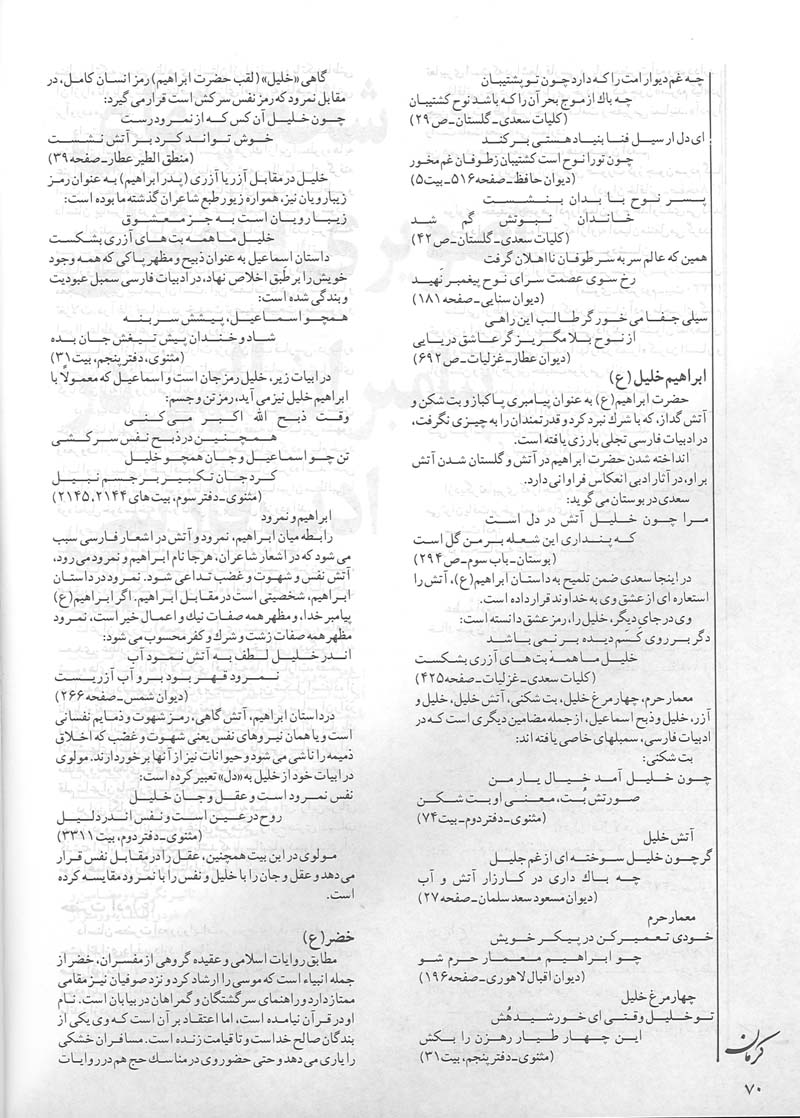 چه غم دیوار امت را که دارد چون تو پشتیبان
چه باك از موج بحر آن را که باشد نوح کشتیبان
(کلیات سعدی ـ گلستان ـ ص ۲۹)
ای دل ار سیل فنا بنیاد هستی بر کند
چون تو را نوح است کشتیبان ز طوفان غم مخور
(دیوان حافظ ـ صفحه ۵۱۶ ـ بیت ۵)
پسر نوح با بدان بنشست
خاندان نبوتش گم شد
(کلیات سعدی ـ گلستان ـ ص ۴۲)
همین که عالم سر به سر طوفان نااهلان گرفت
رخ سوی عصمت سرای نوح پیغمبر نَهید
(دیوان سنایی ـ صفحه ۱۸۱)
سیلی جفا می خور گر طالب این راهی
از نوح بلا مگریز گر عاشق دریایی
(دیوان عطار ـ غزلیات ـ ص ۶۹۲)
ابراهیم خلیل (ع)
حضرت ابراهیم (ع) به عنوان پیامبری پاکباز و بت شکن و
آتش گداز، که با شرك نبرد کرد و قدرتمندان را به چیزی نگرفت،
در ادبیات فارسی تجلی بارزی یافته است.
انداخته شدن حضرت ابراهیم در آتش و گلستان شدن آتش
بر او، در آثار ادبی انعکاس فراوانی دارد.
سعدی در بوستان می گوید:
مرا چون خلیل آتش در دل است
که پنداری این شعله بر من گل است
(بوستان ـ باب سوم ـ ص ۲۹۴)
در اینجا سعدی ضمن تلمیح به داستان ابراهیم (ع)، آتش را
استعاره ای از عشق وی به خداوند قرار داده است.
وی در جای دیگر، خلیل را، رمز عشق دانسته است:
دگر بر روی کَسَم دیده بر نمی باشد
خلیل ما همهٔ بت های آزری بشکست
(کلیات سعدی ـ غزلیات ـ صفحه ۴۲۵)
معمار حرم، چهار مرغ خلیل، بت شکنی، آتش خلیل، خلیل و
آزر، خلیل و ذبح اسماعیل، از جمله مضامین دیگری است که در
ادبیات فارسی، سمبلهای خاصی یافته اند:
بت شکنی:
چون خلیل آمد خیال یار من
صورتش بُت، معنی او بت شکن
(مثنوی ـ دفتر دوم ـ بیت ۷۴)
آتش خلیل
گر چون خلیل سوخته ای از غم جلیل
چه باك داری در کارزار آتش و آب
(دیوان مسعود سعد سلمان ـ صفحه ۲۷)
معمار حرم
خودی تعمیر کن در پیکر خویش
چو ابراهیم معمار حرم شو
(دیوان اقبال لاهوری ـ صفحه ۱۹۶)
چهار مرغ خلیل
تو خلیل وقتی ای خورشید هُش
این چهار طیار رهزن را بکش
(مثنوی ـ دفتر پنجم، بیت ۳۱)
گاهی «خلیل» (لقب حضرت ابراهیم) رمز انسان کامل، در
مقابل نمرود که رمز نفس سرکش است قرار می گیرد:
چون خلیل آن کس که از نمرود رست
خوش تواند کرد بر آتش نشست
(منطق الطیر عطار ـ صفحه ۳۹)
خلیل در مقابل آزر یا آزری (پدر ابراهیم) به عنوان رمز
زیبارویان نیز، همواره زیور طبع شاعران گذشته ما بوده است:
زیبا رویان است به جز معشوق
خلیل ما همه بت های آزری بشکست
داستان اسماعیل به عنوان ذبیح و مظهر پاکی که همه وجود
خویش را بر طبق اخلاص نهاد، در ادبیات فارسی سمبل عبودیت
و بندگی شده است:
همچو اسماعیل، پیشش سر بنه
شاد و خندان پیش تیغش جان بده
(مثنوی، دفتر پنجم، بیت ۳۱)
در ابیات زیر، خلیل رمز جان است و اسماعیل که معمولاً با
ابراهیم خلیل نیز می آید، رمز تن و جسم:
وقت ذبح الله اکبر می کنی
همچنین در ذبح نفس سرکشی
تن چو اسماعیل و جان همچو خلیل
کرد جان تکبیر بر جسم نبیل
(مثنوی ـ دفتر سوم، بیت های ۲۱۴۴، ۲۱۴۵)
ابراهیم و نمرود
رابطه میان ابراهیم، نمرود و آتش در اشعار فارسی سبب
می شود که در اشعار شاعران، هر جا نام ابراهیم و نمرود می رود،
آتش نفس و شهوت و غضب تداعی شود. نمرود در داستان
ابراهیم، شخصیتی است در مقابل ابراهیم. اگر ابراهیم (ع)
پیامبر خدا، و مظهر همه صفات نیك و اعمال خیر است، نمرود
مظهر همه صفات زشت و شرك و کفر محسوب می شود:
اندر خلیل لطف به آتش نمود آب
نمرود قهر بود بر و آب آزریست
(دیوان شمس ـ صفحه ۲۶۶)
در داستان ابراهیم، آتش گاهی، رمز شهوت و ذمایم نفسانی
است و یا همان نیروهای نفس یعنی شهوت و غضب که اخلاق
ذمیمه را ناشی می شود و حیوانات نیز از آنها برخوردارند. مولوی
در ابیات خود از خلیل به «دل» تعبیر کرده است:
نفس نمرود است و عقل و جان خلیل
روح در عین است و نفس اندر دلیل
(مثنوی ـ دفتر دوم، بیت ۳۳۱۱)
مولوی در این بیت همچنین، عقل را در مقابل نفس قرار
می دهد و عقل و جان را با خلیل و نفس را با نمرود مقایسه کرده
است.
خضر (ع)
مطابق روایات اسلامی و عقیده گروهی از مفسران، خضر از
جمله انبیاء است که موسی را ارشاد کرد و نزد صوفیان نیز مقامی
ممتاز دارد و راهنمای سرگشتگان و گمراهان در بیابان است. نام
او در قرآن نیامده است، اما اعتقاد بر آن است که وی یکی از
بندگان صالح خداست و تا قیامت زنده است. مسافران خشکی
را یاری می دهد و حتی حضور وی در مناسك حج هم در روایات
کرمان
۷۰